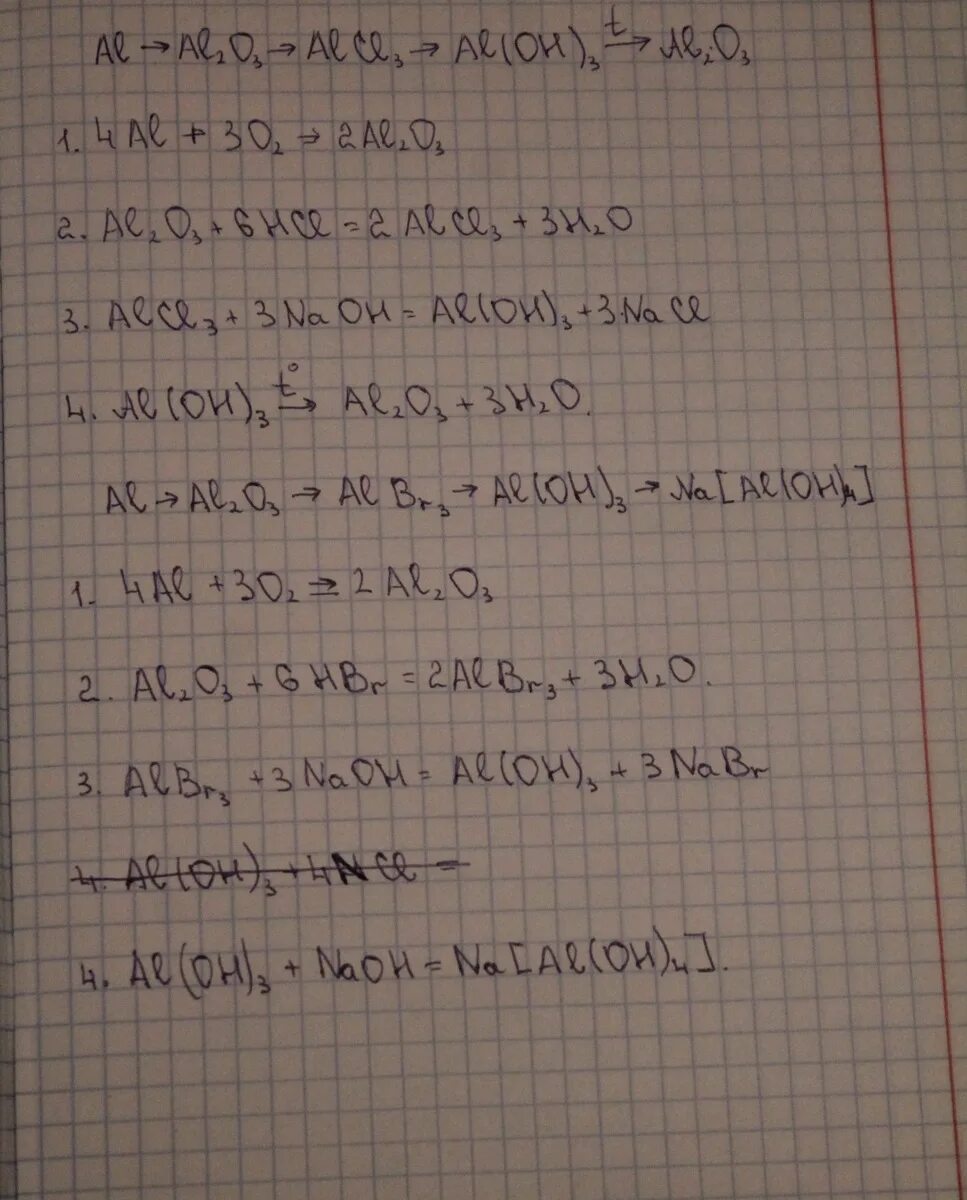 Al → Al₂O₃ → AlCl₃ → Al(OH)₃ –t→ Al₂O₃
1. 4Al + 3O₂ → 2Al₂O₃
2. Al₂O₃ + 6HCl = 2AlCl₃ + 3H₂O
3. AlCl₃ + 3NaOH = Al(OH)₃ + 3NaCl
4. Al(OH)₃ –t°→ Al₂O₃ + 3H₂O.
Al → Al₂O₃ → AlBr₃ → Al(OH)₃ → Na[Al(OH)₄]
1. 4Al + 3O₂ = 2Al₂O₃
2. Al₂O₃ + 6HBr = 2AlBr₃ + 3H₂O.
3. AlBr₃ + 3NaOH = Al(OH)₃ + 3NaBr
4. Al(OH)₃ + 4 Cl =
4. Al(OH)₃ + NaOH = Na[Al(OH)₄].